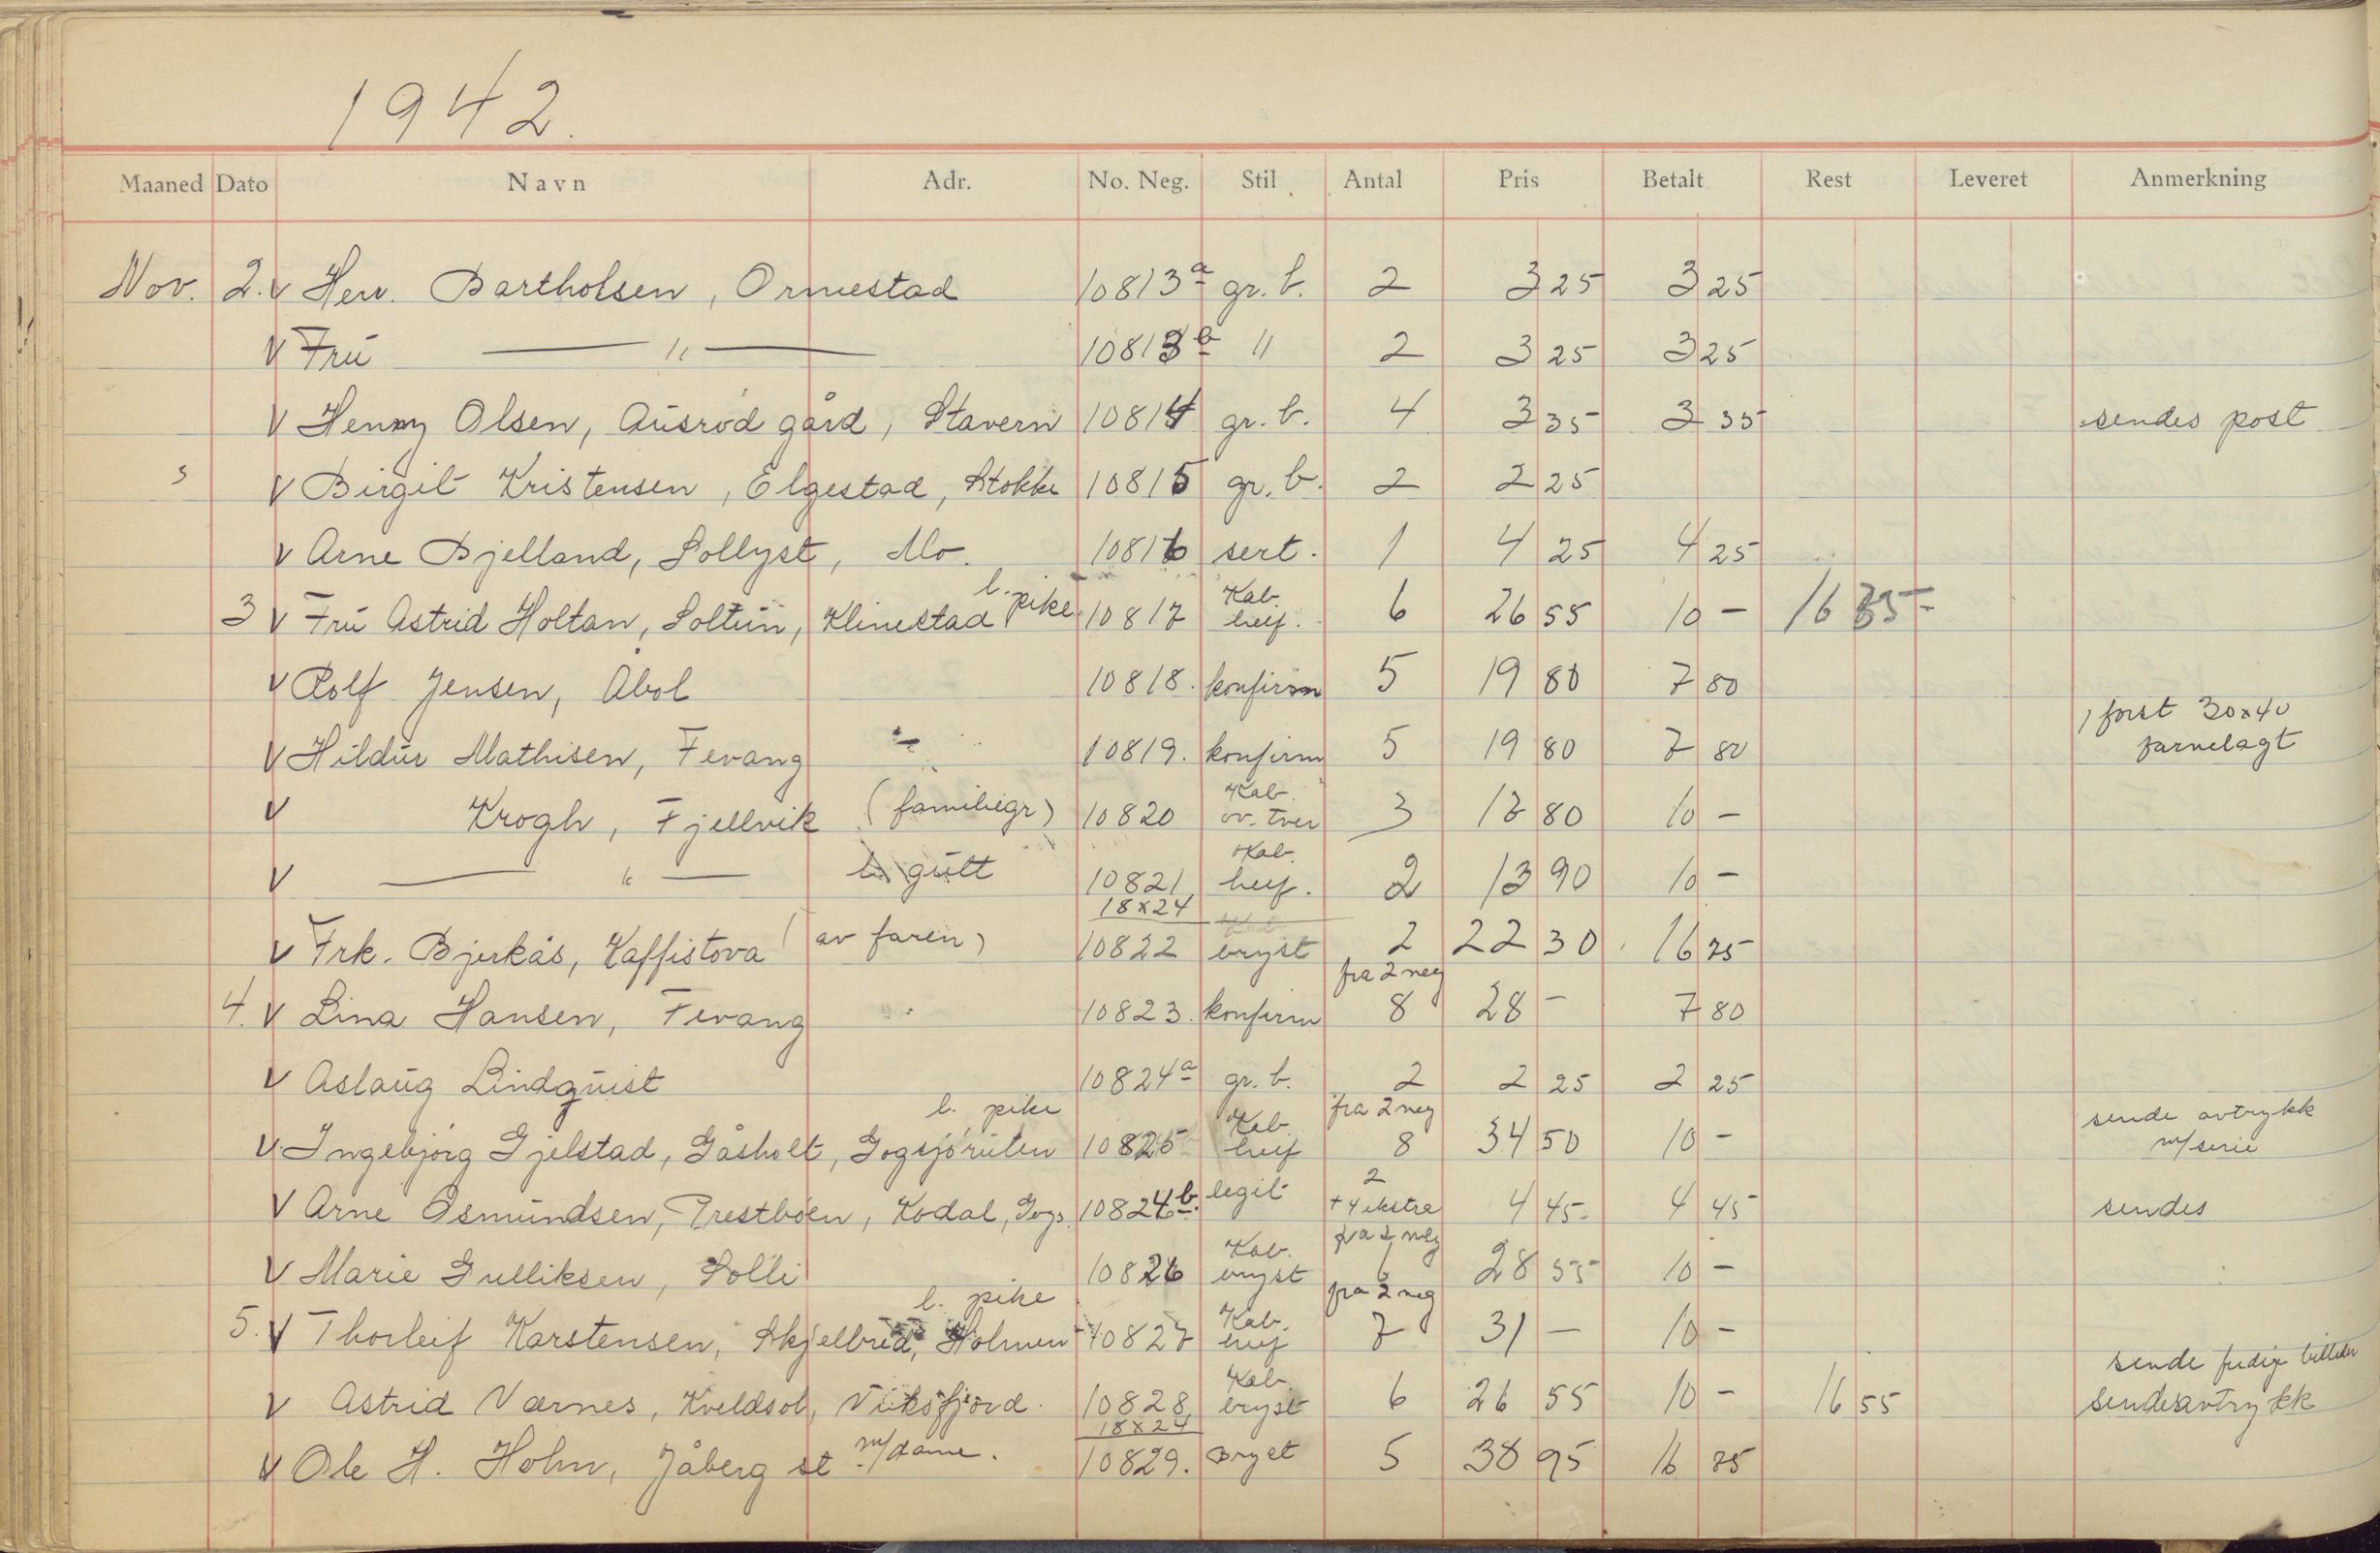 1942.
Maaned Dato Navn Adr. No. Neg. Stil Antal Pris Betalt Rest Leveret Anmerkning
Nov. 2. V Herr. Bartholsen, Ormestad 10813a gr. b. 2 3 25 3 25
V Fru — " — 10813b " 2 3 25 3 25
V Henny Olsen, Ausrød gård, Stavern 10814 gr. b. 4 3 35 3 35 sendes post
V Birgit Kristensen, Elgestad, Stokke 10815 gr. b. 2 2 25
V Arne Bjelland, Sollyst, Mo. 10816 sert. 1 4 25 4 25
3 V Fru Astrid Holtan, Soltun, Klinestad l. pike 10817 Kab. helf. 6 26 55 10 - 16
V Rolf Jensen, Åbol 10818. konfirm 5 19 80 7 80
V Hildur Mathisen, Fevang 10819. konfirm 5 19 80 7 80 1 forst 30x40 farvelagt
V Krogh, Fjellvik (familiegr) 10820 Kab. ov. tver 3 17 80 10 -
V — " — l. gutt 10821 Kab. helf. 2 13 90 10 -
V Frk. Bjerkås, Kaffistova (av faren) 18x24 10822 bryst 2 22 30 16 75
4. V Lina Hansen, Fevang 10823. konfirm fra 2 neg 8 28 - 7 80
V Aslaug Lindquist 10824a gr. b. 2 2 25 2 25
V Ingebjørg Gjelstad, Gåsholt, Gogsjøruten l. pike 10825 Kab. helf fra 2 neg 8 34 50 10 - sende avtrykk m/serie
V Arne Osmundsen, Prestbøen, Kodal, Gogs. 10824b. legit 2 + 4 ekstra 4 45 4 45 sendes
V Marie Gulliksen, Solli 10826 Kab. bryst fra 2 neg 6 28 55 10 -
5. V Thorleif Karstensen, Skjellbred, Holmen l. pike 10827 Kab. helf fra 2 neg 7 31 — 10 -
V Astrid Værnes, Kveldsol, Viksfjord. 10828 Kab. bryst 6 26 55 10 - 16 55 sende ferdige billeder sendes avtrykk
V Ole H. Holm, Jåberg st m/dame. 18x24 10829. bryst 5 38 95 16 75